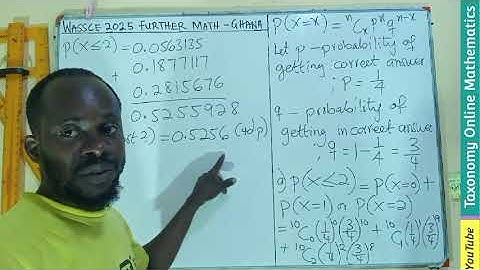 WASSCE 2025 FURTHER MATH - GHANA
P(X≤2) = 0.0563135
+ 0.1877117
0.2815676
0.5255928
st 2) = 0.5256 (4d.p)
P(X=x) = ⁿCₓ pˣ qⁿ⁻ˣ
Let p - probability of
getting correct answer
; P = 1/4
q - probability of
getting incorrect answer
; q = 1 - 1/4 = 3/4
P(X≤2) = P(X=0) +
P(X=1) or P(X=2)
= ¹⁰C₀ (1/4)⁰ (3/4)¹⁰ + ¹⁰C₁ (1/4)¹ (3/4)⁹
+ ¹⁰C₂ (1/4)² (3/4)⁸
Taxonomy Online Mathematics
YouTube